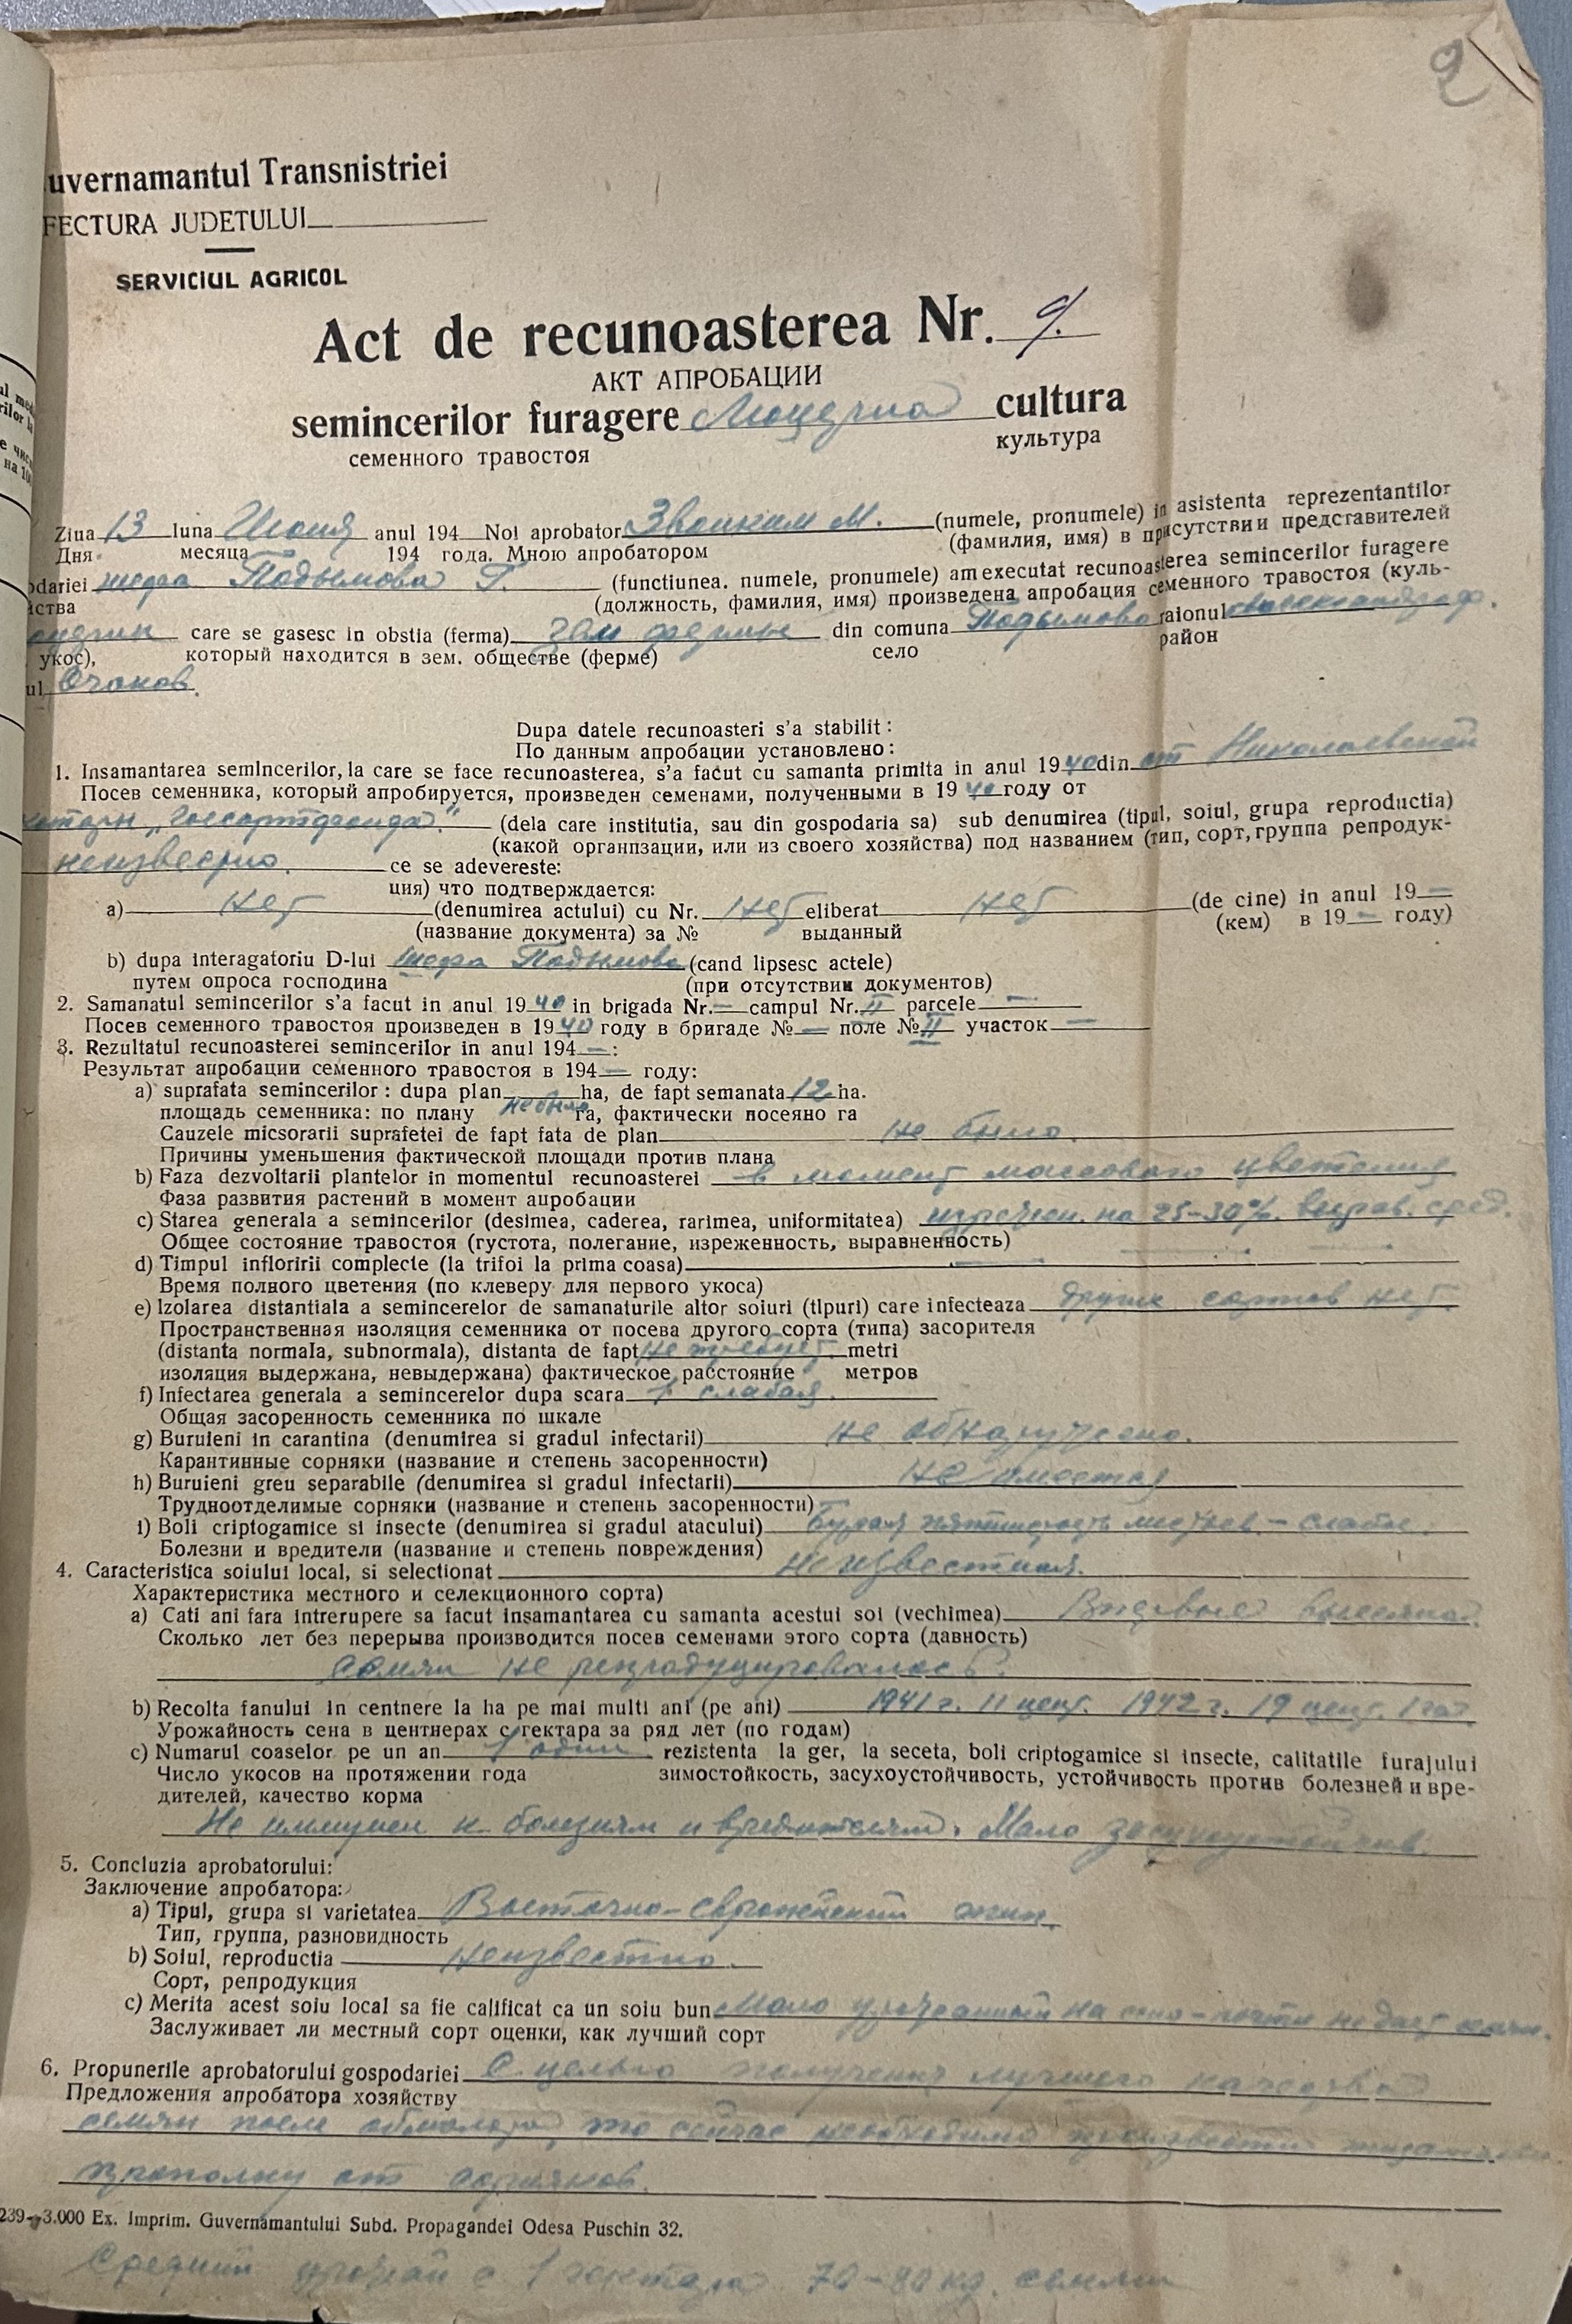 2
uvernamantul Transnistriei
FECTURA JUDETULUI
SERVICIUL AGRICOL
Act de recunoasterea Nr. 9.
АКТ АПРОБАЦИИ
semincerilor furagere Люцерна cultura
семенного травостоя культура
Ziua 13 luna Июня anul 194 Noi aprobator Звонким М. (numele, pronumele) in asistenta reprezentantilor
Дня месяца 194 года. Мною апробатором (фамилия, имя) в присутствии представителей
odariei шефа Подымова Г. (functiunea. numele, pronumele) am executat recunoasterea semincerilor furagere
йства (должность, фамилия, имя) произведена апробация семенного травостоя (куль-
care se gasesc in obstia (ferma) din comuna Подымово raionul Александроф.
укос), который находится в зем. обществе (ферме) село район
ul Очаков.
Dupa datele recunoasteri s'a stabilit:
По данным апробации установлено:
1. Insamantarea semincerilor, la care se face recunoasterea, s'a facut cu samanta primita in anul 1940 din от Николаевской
Посев семенника, который апробируется, произведен семенами, полученными в 1940 году от
конторы „Госсортфонда." (dela care institutia, sau din gospodaria sa) sub denumirea (tipul, soiul, grupa reproductia)
(какой организации, или из своего хозяйства) под названием (тип, сорт, группа репродук-
неизвестно. ce se adevereste:
ция) что подтверждается:
a) нет (denumirea actului) cu Nr. нет eliberat нет (de cine) in anul 19 —
(название документа) за № выданный (кем) в 19 — году)
b) dupa interagatoriu D-lui шефа Подымова (cand lipsesc actele)
путем опроса господина (при отсутствии документов)
2. Samanatul semincerilor s'a facut in anul 1940 in brigada Nr. — campul Nr. II parcele —
Посев семенного травостоя произведен в 1940 году в бригаде № — поле № II участок —
3. Rezultatul recunoasterei semincerilor in anul 194 — :
Результат апробации семенного травостоя в 194 — году:
a) suprafata semincerilor: dupa plan не было ha, de fapt semanata 12 ha.
площадь семенника: по плану га, фактически посеяно га
Cauzele micsorarii suprafetei de fapt fata de plan не было.
Причины уменьшения фактической площади против плана
b) Faza dezvoltarii plantelor in momentul recunoasterei в момент массового цветения
Фаза развития растений в момент апробации
c) Starea generala a semincerilor (desimea, caderea, rarimea, uniformitatea) изрежен. на 25-30%. вырав. сред.
Общее состояние травостоя (густота, полегание, изреженность, выравненность)
d) Timpul infloririi complecte (la trifoi la prima coasa) —
Время полного цветения (по клеверу для первого укоса)
e) Izolarea distantiala a semincerelor de samanaturile altor soiuri (tipuri) care infecteaza других сортов нет.
Пространственная изоляция семенника от посева другого сорта (типа) засорителя
(distanta normala, subnormala), distanta de fapt не требует. metri
изоляция выдержана, невыдержана) фактическое расстояние метров
f) Infectarea generala a semincerelor dupa scara 1 слабая.
Общая засоренность семенника по шкале
g) Buruieni in carantina (denumirea si gradul infectarii) не обнаружено.
Карантинные сорняки (название и степень засоренности)
h) Buruieni greu separabile (denumirea si gradul infectarii) не имеется
Трудноотделимые сорняки (название и степень засоренности)
i) Boli criptogamice si insecte (denumirea si gradul atacului) бурая пятнистость листьев – слабо.
Болезни и вредители (название и степень повреждения)
4. Caracteristica soiului local, si selectionat неизвестная.
Характеристика местного и селекционного сорта)
a) Cati ani fara intrerupere sa facut insamantarea cu samanta acestui soi (vechimea) Впервые высеяна.
Сколько лет без перерыва производится посев семенами этого сорта (давность)
семян не репродуцировалось.
b) Recolta fanului in centnere la ha pe mai multi ani (pe ani) 1941 г. 11 цент. 1942 г. 19 цент. 1 га.
Урожайность сена в центнерах с гектара за ряд лет (по годам)
c) Numarul coaselor pe un an 1 один rezistenta la ger, la seceta, boli criptogamice si insecte, calitatile furajului
Число укосов на протяжении года зимостойкость, засухоустойчивость, устойчивость против болезней и вре-
дителей, качество корма
Не иммунен к болезням и вредителям. Мало засухоустойчив.
5. Concluzia aprobatorului:
Заключение апробатора:
a) Tipul, grupa si varietatea Восточно-европейский
Тип, группа, разновидность
b) Soiul, reproductia неизвестно.
Сорт, репродукция
c) Merita acest soiu local sa fie calificat ca un soiu bun Мало урожайный на сено – почти не даёт семян.
Заслуживает ли местный сорт оценки, как лучший сорт
6. Propunerile aprobatorului gospodariei С целью получения лучшего качества
Предложения апробатора хозяйству
семян после обмолота, то сейчас необходимо произвести
прополку от сорняков.
239—3.000 Ex. Imprim. Guvernamantului Subd. Propagandei Odesa Puschin 32.
Средний урожай с 1 гектара 70-80 кг. семян